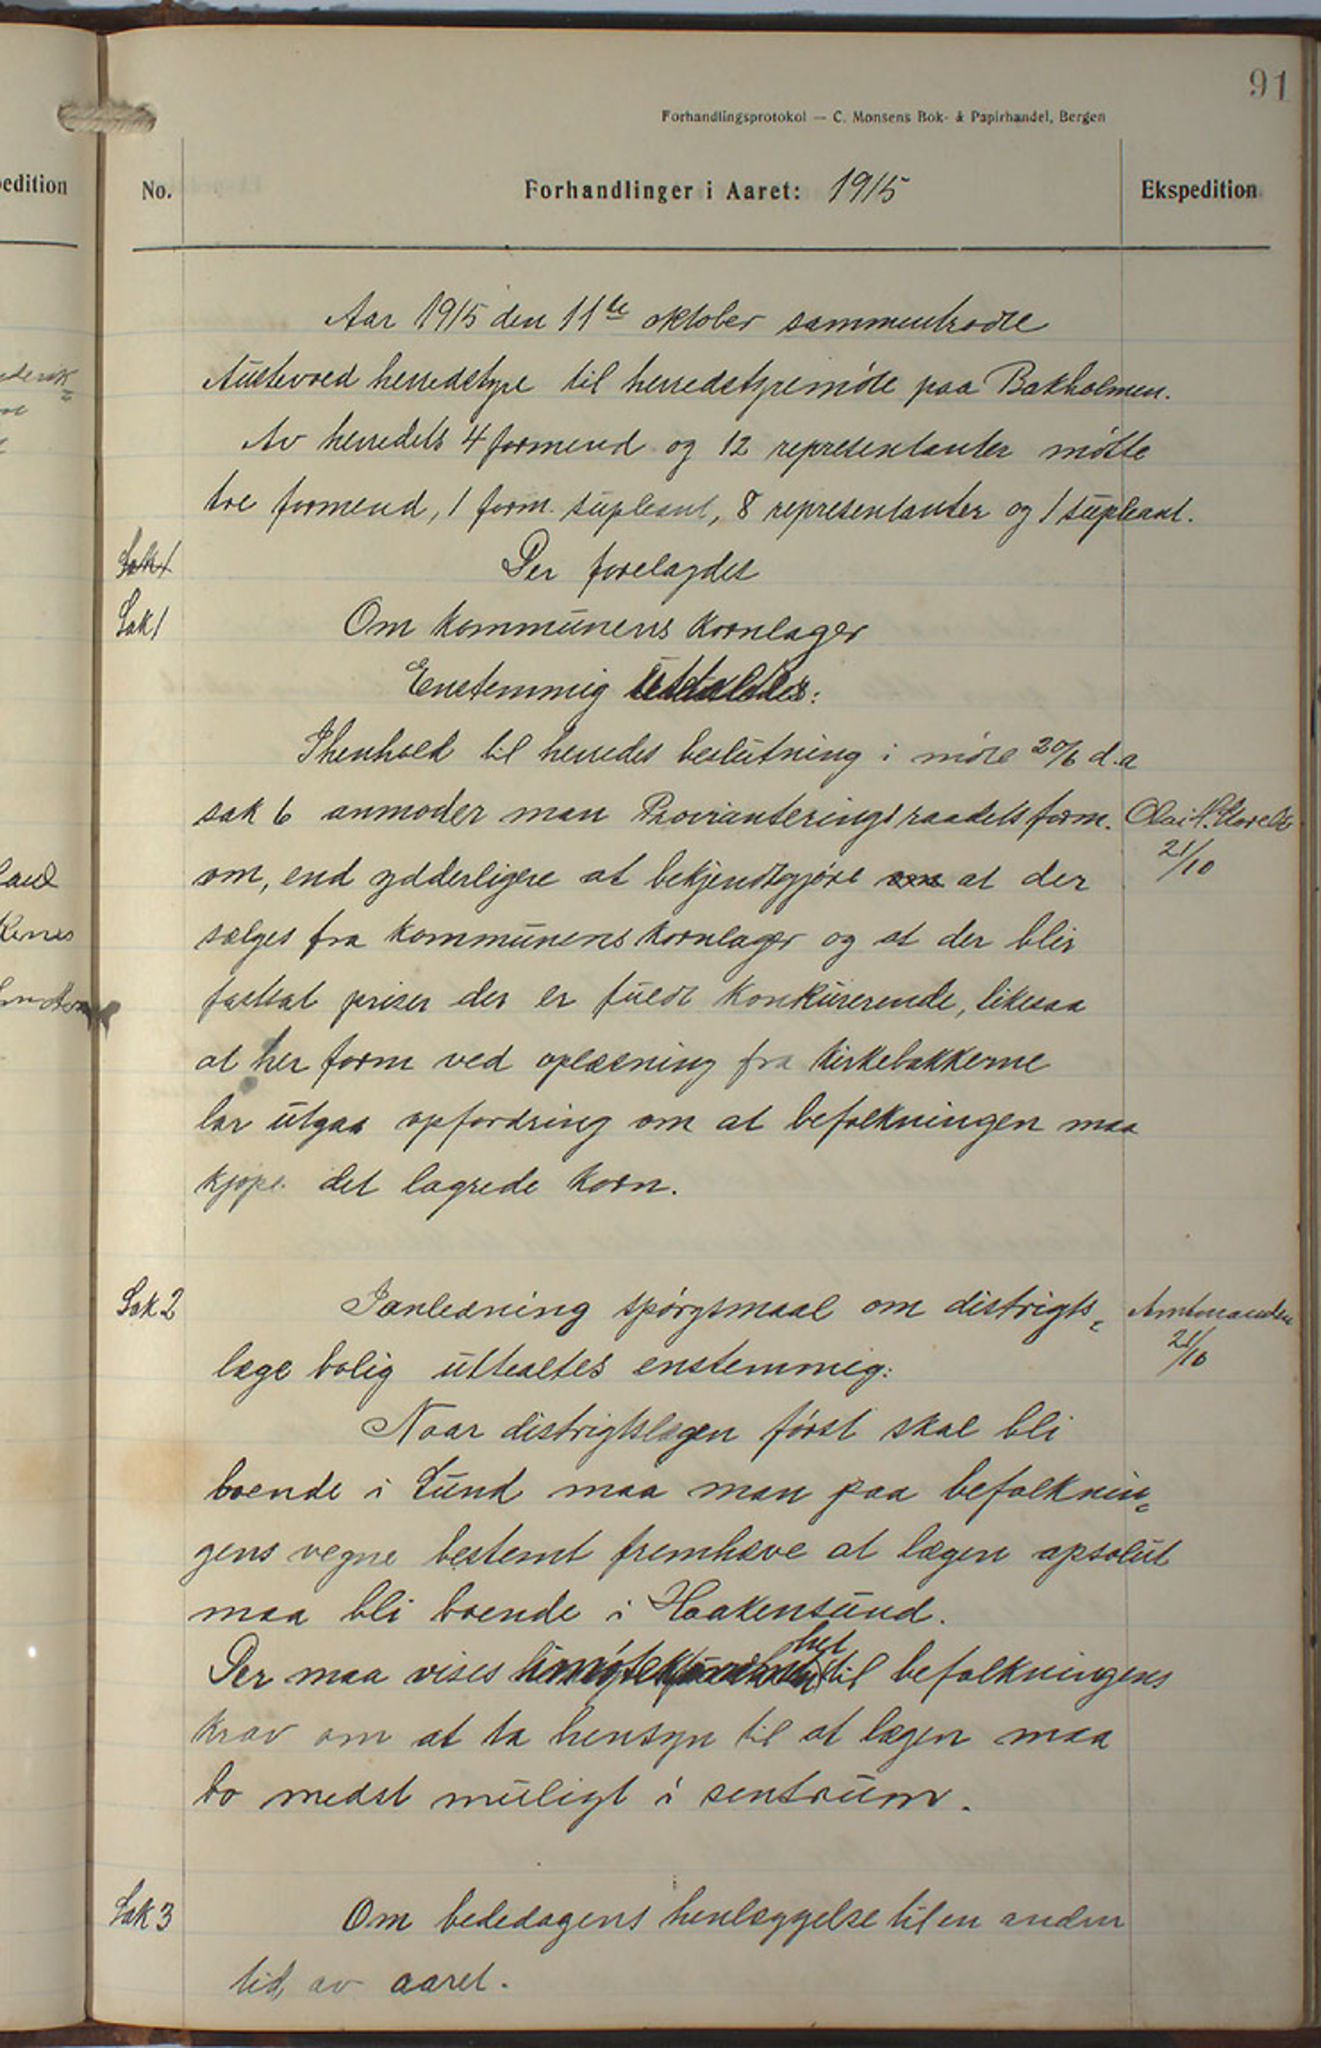 91
Forhandlingsprotokol — C. Monsens Bok- & Papirhandel, Bergen
pedition
No.
Forhandlinger i Aaret: 1915
Ekspedition
Aar 1915 den 11te oktober sammentraadte
Austevoed herredstyre til herredstyremöte paa Bakholmen.
Av herredets 4 formend og 12 representanter mötte
tre formend, 1 form. supleant, 8 representanter og 1 supleant.
Sak 1
Der forelagdes
Sak 1
Om kommunens kornlager
Enstemmig uttaltes:
Ihenhold til herredes beslutning i möte 20/6 d.a
sak 6 anmoder man Provianteringsraadets form.
21/10
om, end ydderligere at bekjendtgjöre om at der
sælges fra kommunens kornlager og at der blir
fastsat priser der er fuldt konkurerende, likesaa
at her form ved oplæsning fra kirkebakkerne
lar utgaa opfordring om at befolkningen maa
kjøpe det lagrede korn.
Sak 2
Ianledning spörgsmaal om distrigts-
Amtmanden
21/10
læge bolig uttaltes enstemmig:
Naar distrigtslægen först skal bli
boende i Sund maa man paa befolknin-
gens vegne bestemt fremhæve at lægen apsolut
maa bli boende i Haakensund.
Der maa vises imötekommenhet til befolkningens
krav om at ta hensyn til at lægen maa
bo medst muligt i sentrum.
Sak 3
Om bededagens henlæggelse til en anden
tid av aaret.